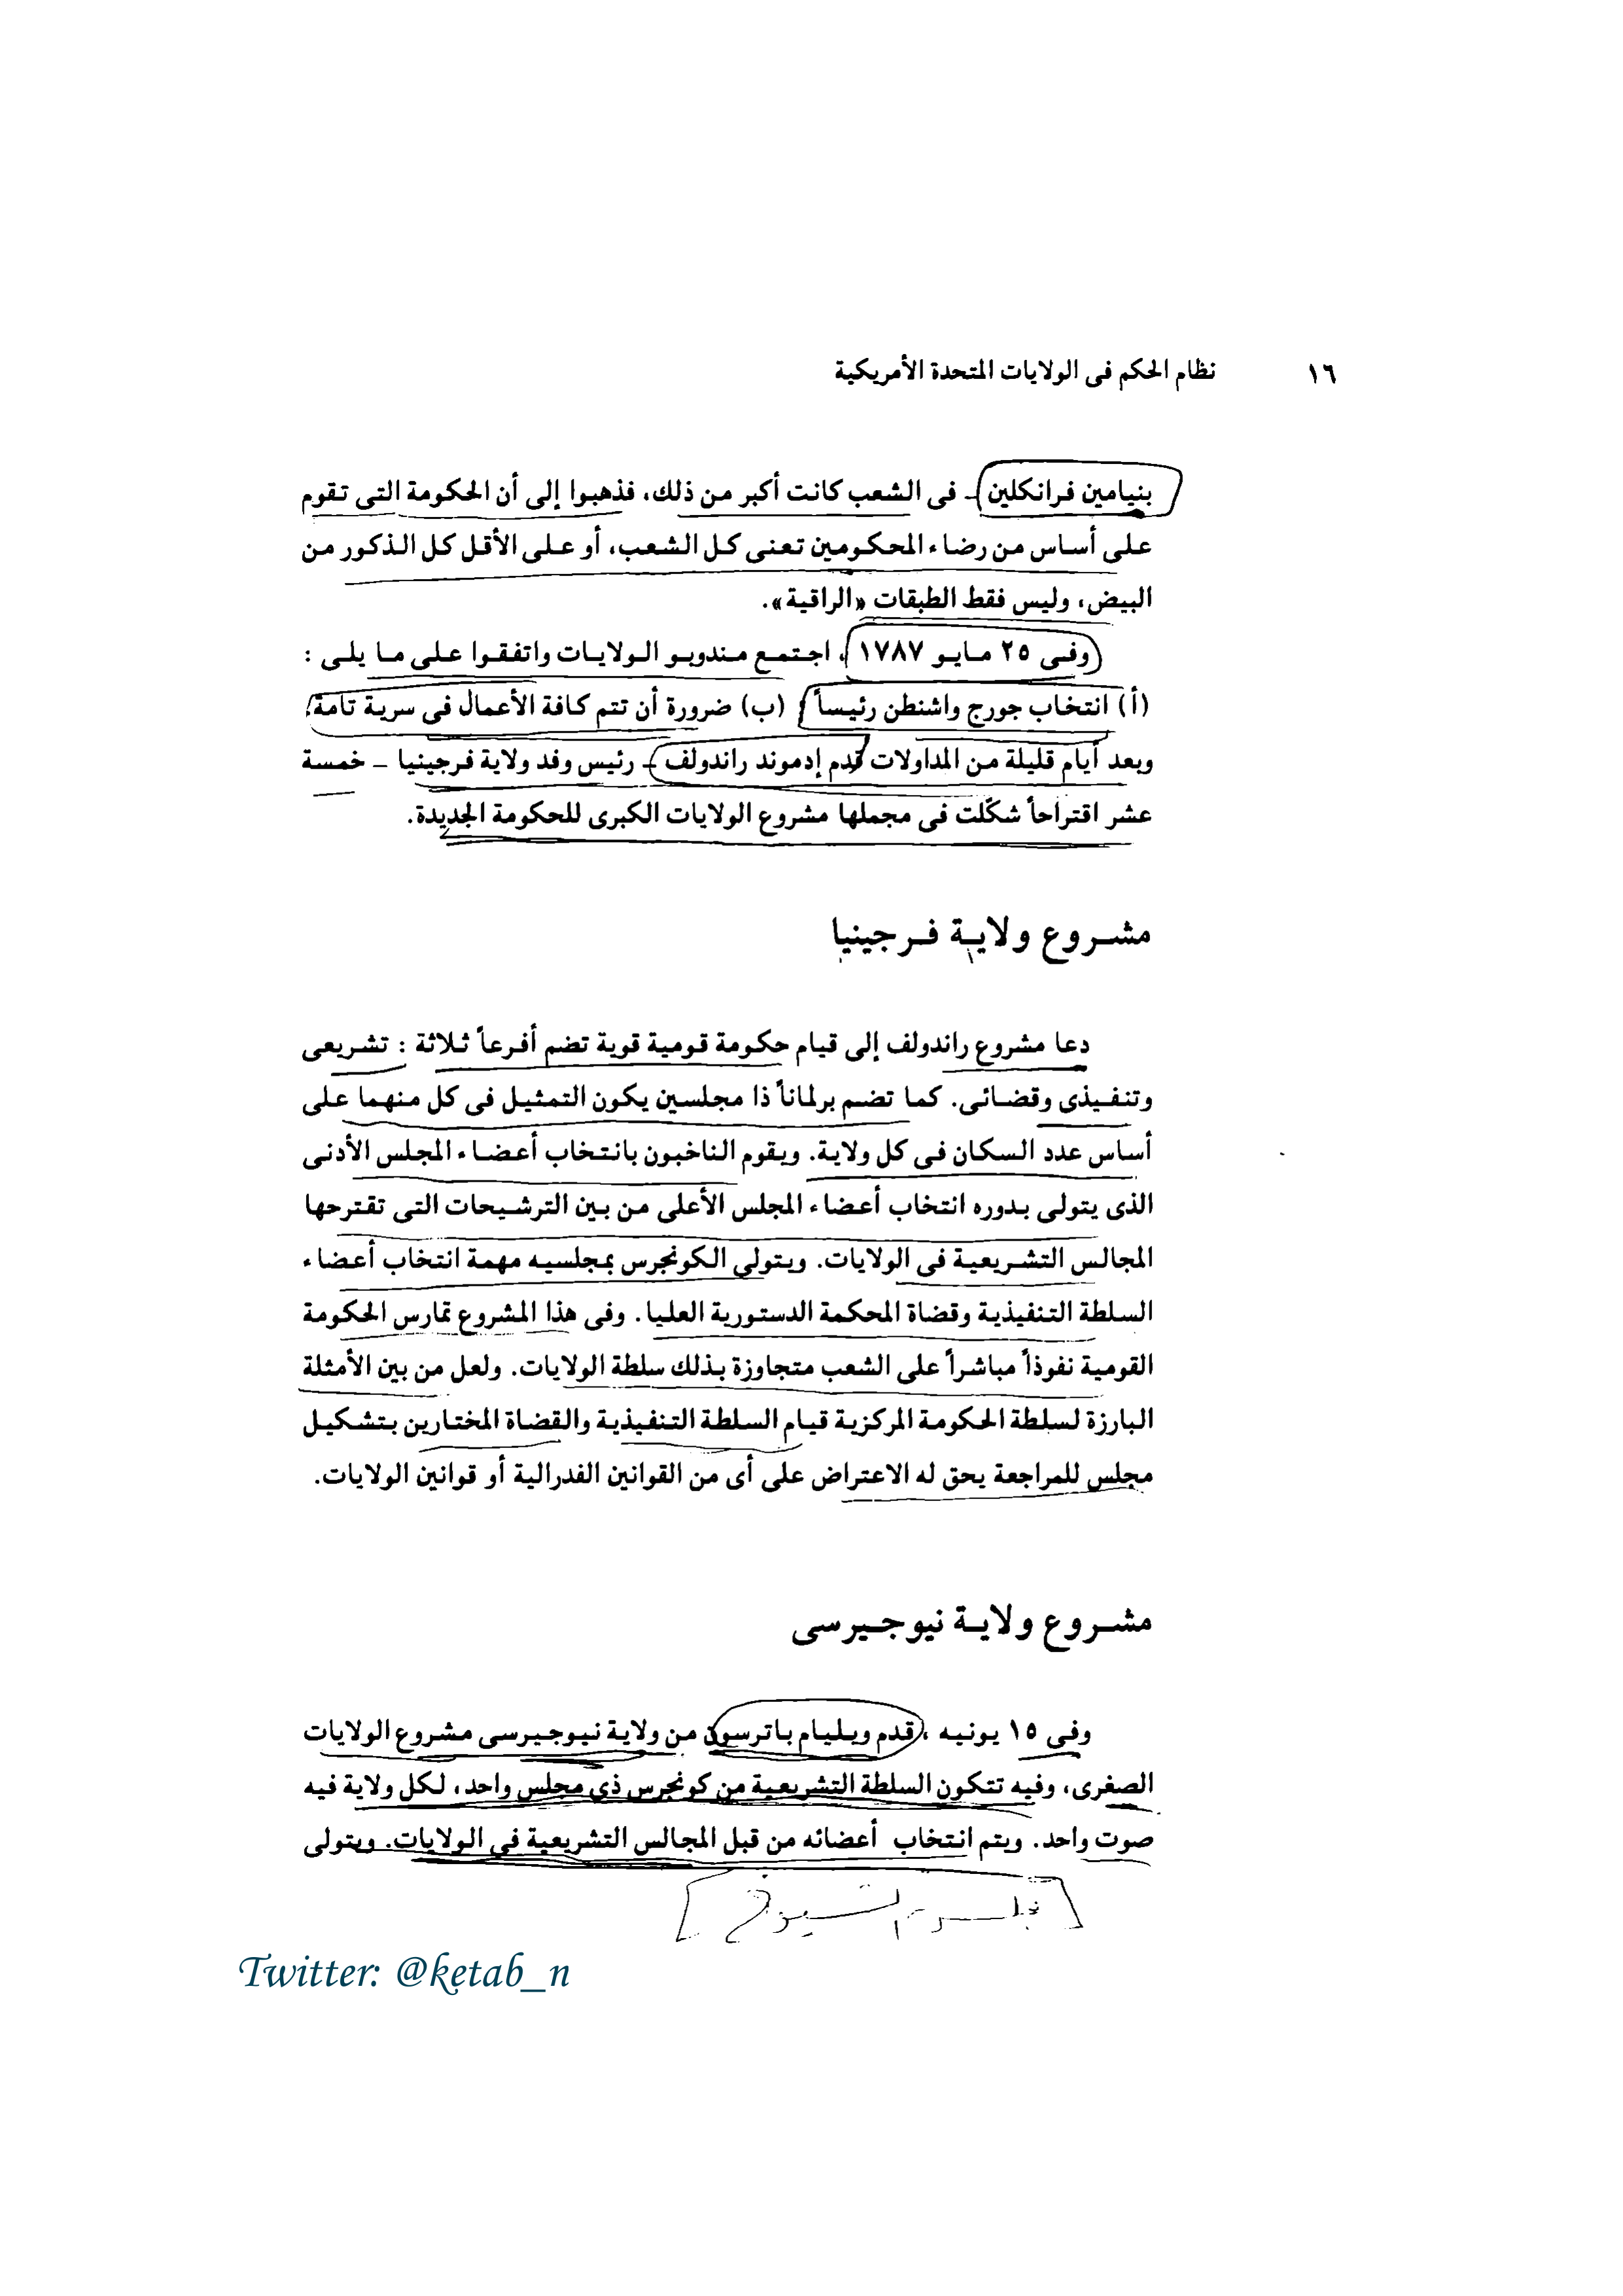 ١٦ نظام الحكم فى الولايات المتحدة الأمريكية
بنيامين فرانكلين – فى الشعب كانت أكبر من ذلك، فذهبوا إلى أن الحكومة التى تقوم
على أساس من رضاء المحكومين تعنى كل الشعب، أو على الأقل كل الذكور من
البيض، وليس فقط الطبقات «الراقية».
وفى ٢٥ مايو ١٧٨٧، اجتمع مندوبو الولايات واتفقوا على ما يلى :
(أ) انتخاب جورج واشنطن رئيساً؛ (ب) ضرورة أن تتم كافة الأعمال فى سرية تامة.
وبعد أيام قليلة من المداولات قدم إدموند راندولف – رئيس وفد ولاية فرجينيا – خمسة
عشر اقتراحاً شكّلت فى مجملها مشروع الولايات الكبرى للحكومة الجديدة.
مشروع ولاية فرجينيا
دعا مشروع راندولف إلى قيام حكومة قومية قوية تضم أفرعاً ثلاثة : تشريعى
وتنفيذى وقضائى. كما تضم برلماناً ذا مجلسين يكون التمثيل فى كل منهما على
أساس عدد السكان فى كل ولاية. ويقوم الناخبون بانتخاب أعضاء المجلس الأدنى
الذى يتولى بدوره انتخاب أعضاء المجلس الأعلى من بين الترشيحات التى تقترحها
المجالس التشريعية فى الولايات. ويتولى الكونجرس بمجلسيه مهمة انتخاب أعضاء
السلطة التنفيذية وقضاة المحكمة الدستورية العليا. وفى هذا المشروع تمارس الحكومة
القومية نفوذاً مباشراً على الشعب متجاوزة بذلك سلطة الولايات. ولعل من بين الأمثلة
البارزة لسلطة الحكومة المركزية قيام السلطة التنفيذية والقضاة المختارين بتشكيل
مجلس للمراجعة يحق له الاعتراض على أى من القوانين الفدرالية أو قوانين الولايات.
مشروع ولاية نيوجيرسى
وفى ١٥ يونيه ، قدم ويليام باترسون من ولاية نيوجيرسى مشروع الولايات
الصغرى، وفيه تتكون السلطة التشريعية من كونجرس ذى مجلس واحد، لكل ولاية فيه
صوت واحد. ويتم انتخاب أعضائه من قبل المجالس التشريعية فى الولايات. ويتولى
مجلس الشيوخ
Twitter: @ketab_n